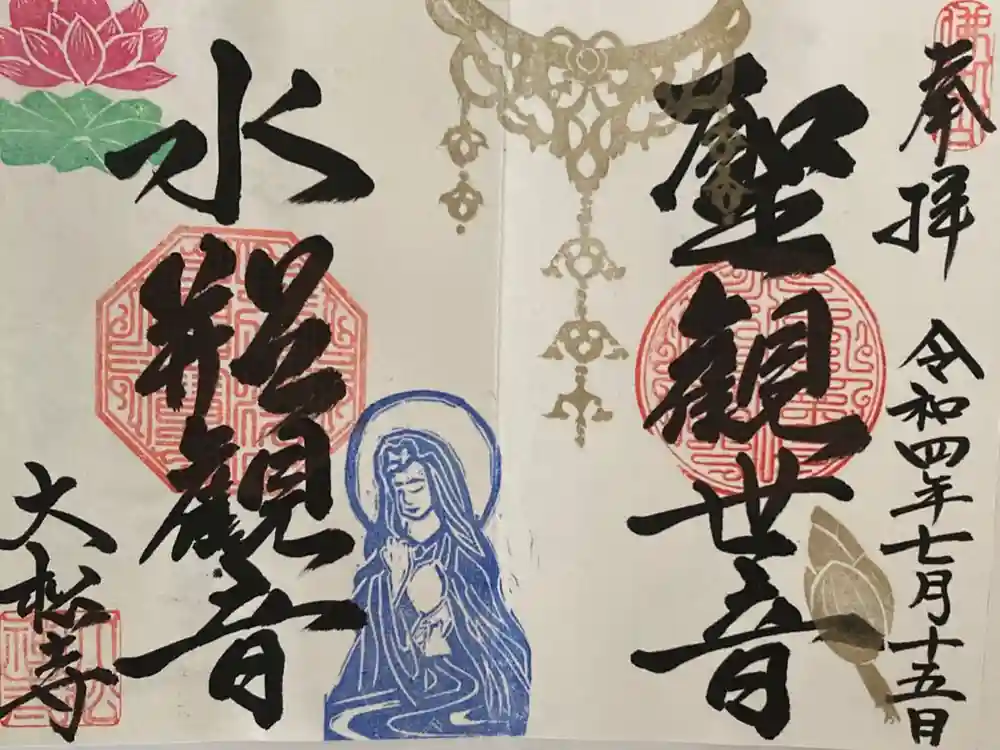 奉拝
令和四年七月十五日
聖観世音
水瓶観音
大松寺